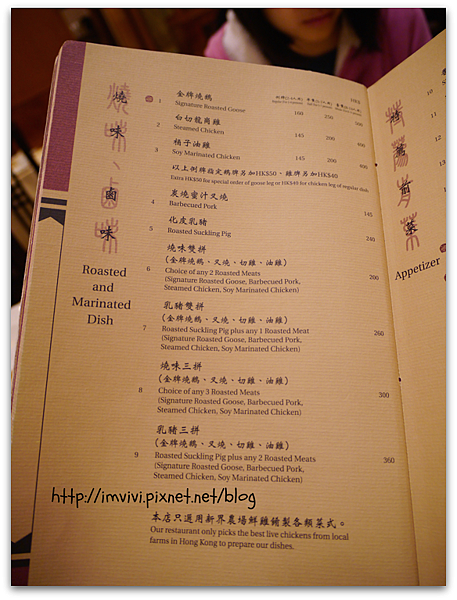 燒味、鹵味
Roasted
and
Marinated
Dish
HK$
1 金牌燒鵝 168 330 500
Signature Roasted Goose
2 白切龍崗雞 145 200 400
Steamed Chicken
3 桶子油雞 145 200 400
Soy Marinated Chicken
以上例牌指定鵝髀另加HK$50、雞髀另加HK$40
Extra HK$50 for special order of goose leg or HK$40 for chicken leg of regular dish.
4 炭燒蜜汁叉燒 145
Barbecued Pork
5 化皮乳豬 240
Roasted Suckling Pig
燒味雙拼
(金牌燒鵝、叉燒、切雞、油雞)
6 Choice of any 2 Roasted Meats 200
(Signature Roasted Goose, Barbecued Pork,
Steamed Chicken, Soy Marinated Chicken)
乳豬雙拼
(金牌燒鵝、叉燒、切雞、油雞)
7 Roasted Suckling Pig plus any 1 Roasted Meat 260
(Signature Roasted Goose, Barbecued Pork,
Steamed Chicken, Soy Marinated Chicken)
燒味三拼
(金牌燒鵝、叉燒、切雞、油雞)
8 Choice of any 3 Roasted Meats 300
(Signature Roasted Goose, Barbecued Pork,
Steamed Chicken, Soy Marinated Chicken)
乳豬三拼
(金牌燒鵝、叉燒、切雞、油雞)
9 Roasted Suckling Pig plus any 2 Roasted Meats 360
(Signature Roasted Goose, Barbecued Pork,
Steamed Chicken, Soy Marinated Chicken)
本店只選用新界農場鮮雞炮製各類菜式。
Our restaurant only picks the best live chickens from local
farms in Hong Kong to prepare our dishes.
Appetizer
10
11
12
http://imvivi.pixnet.net/blog